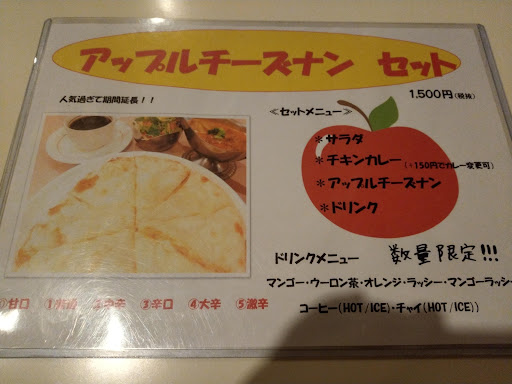 アップルチーズナン セット
1,500円(税抜)
人気過ぎて期間延長！！
≪セットメニュー≫
＊サラダ
＊チキンカレー(+150円でカレー変更可)
＊アップルチーズナン
＊ドリンク
ドリンクメニュー 数量限定!!!
マンゴー・ウーロン茶・オレンジ・ラッシー・マンゴーラッシー
コーヒー(HOT/ICE)・チャイ(HOT/ICE))
甘口 1普通 2中辛 3辛口 4大辛 5激辛